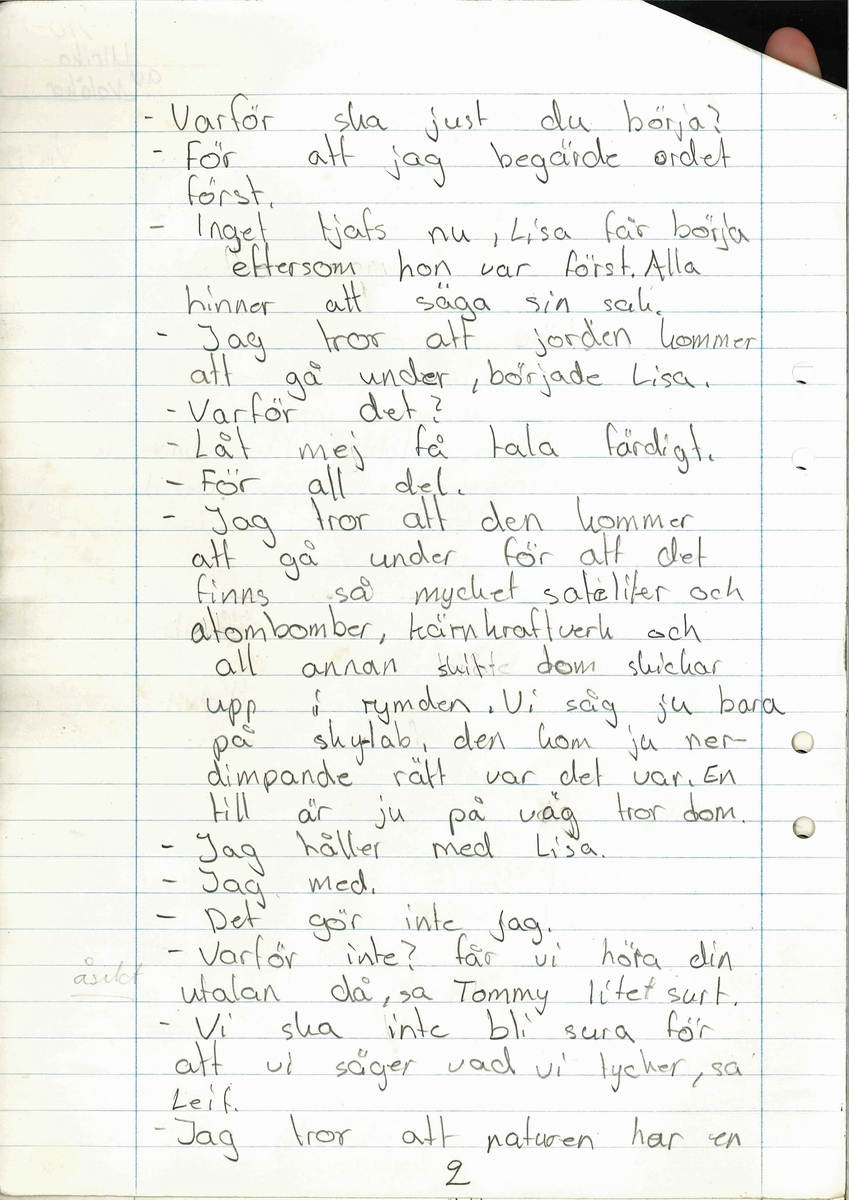 - Varför ska just du börja?
- För att jag begärde ordet
först.
- Inget tjafs nu, Lisa får börja
eftersom hon var först. Alla
hinner att säga sin sak.
- Jag tror att jorden kommer
att gå under, började Lisa.
- Varför det?
- Låt mej få tala färdigt.
- För all del.
- Jag tror att den kommer
att gå under för att det
finns så mycket sateliter och
atombomber, kärnkraftverk och
all annan skit dom skickar
upp i rymden. Vi såg ju bara
på sky-lab, den kom ju ner-
dimpande rätt var det var. En
till är ju på väg tror dom.
- Jag håller med Lisa.
- Jag med.
- Det gör inte jag.
- Varför inte? får vi höra din
åsikt
utalan då, sa Tommy litet surt.
- Vi ska inte bli sura för
att vi säger vad vi tycker, sa
Leif.
- Jag tror att naturen har en
2